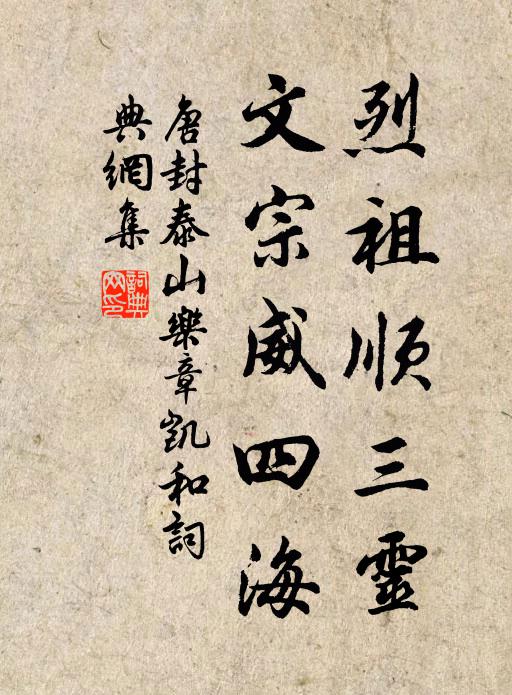 烈祖順三靈
文宗威四海
唐封泰山樂章凱和詞
典網集
詞典网印